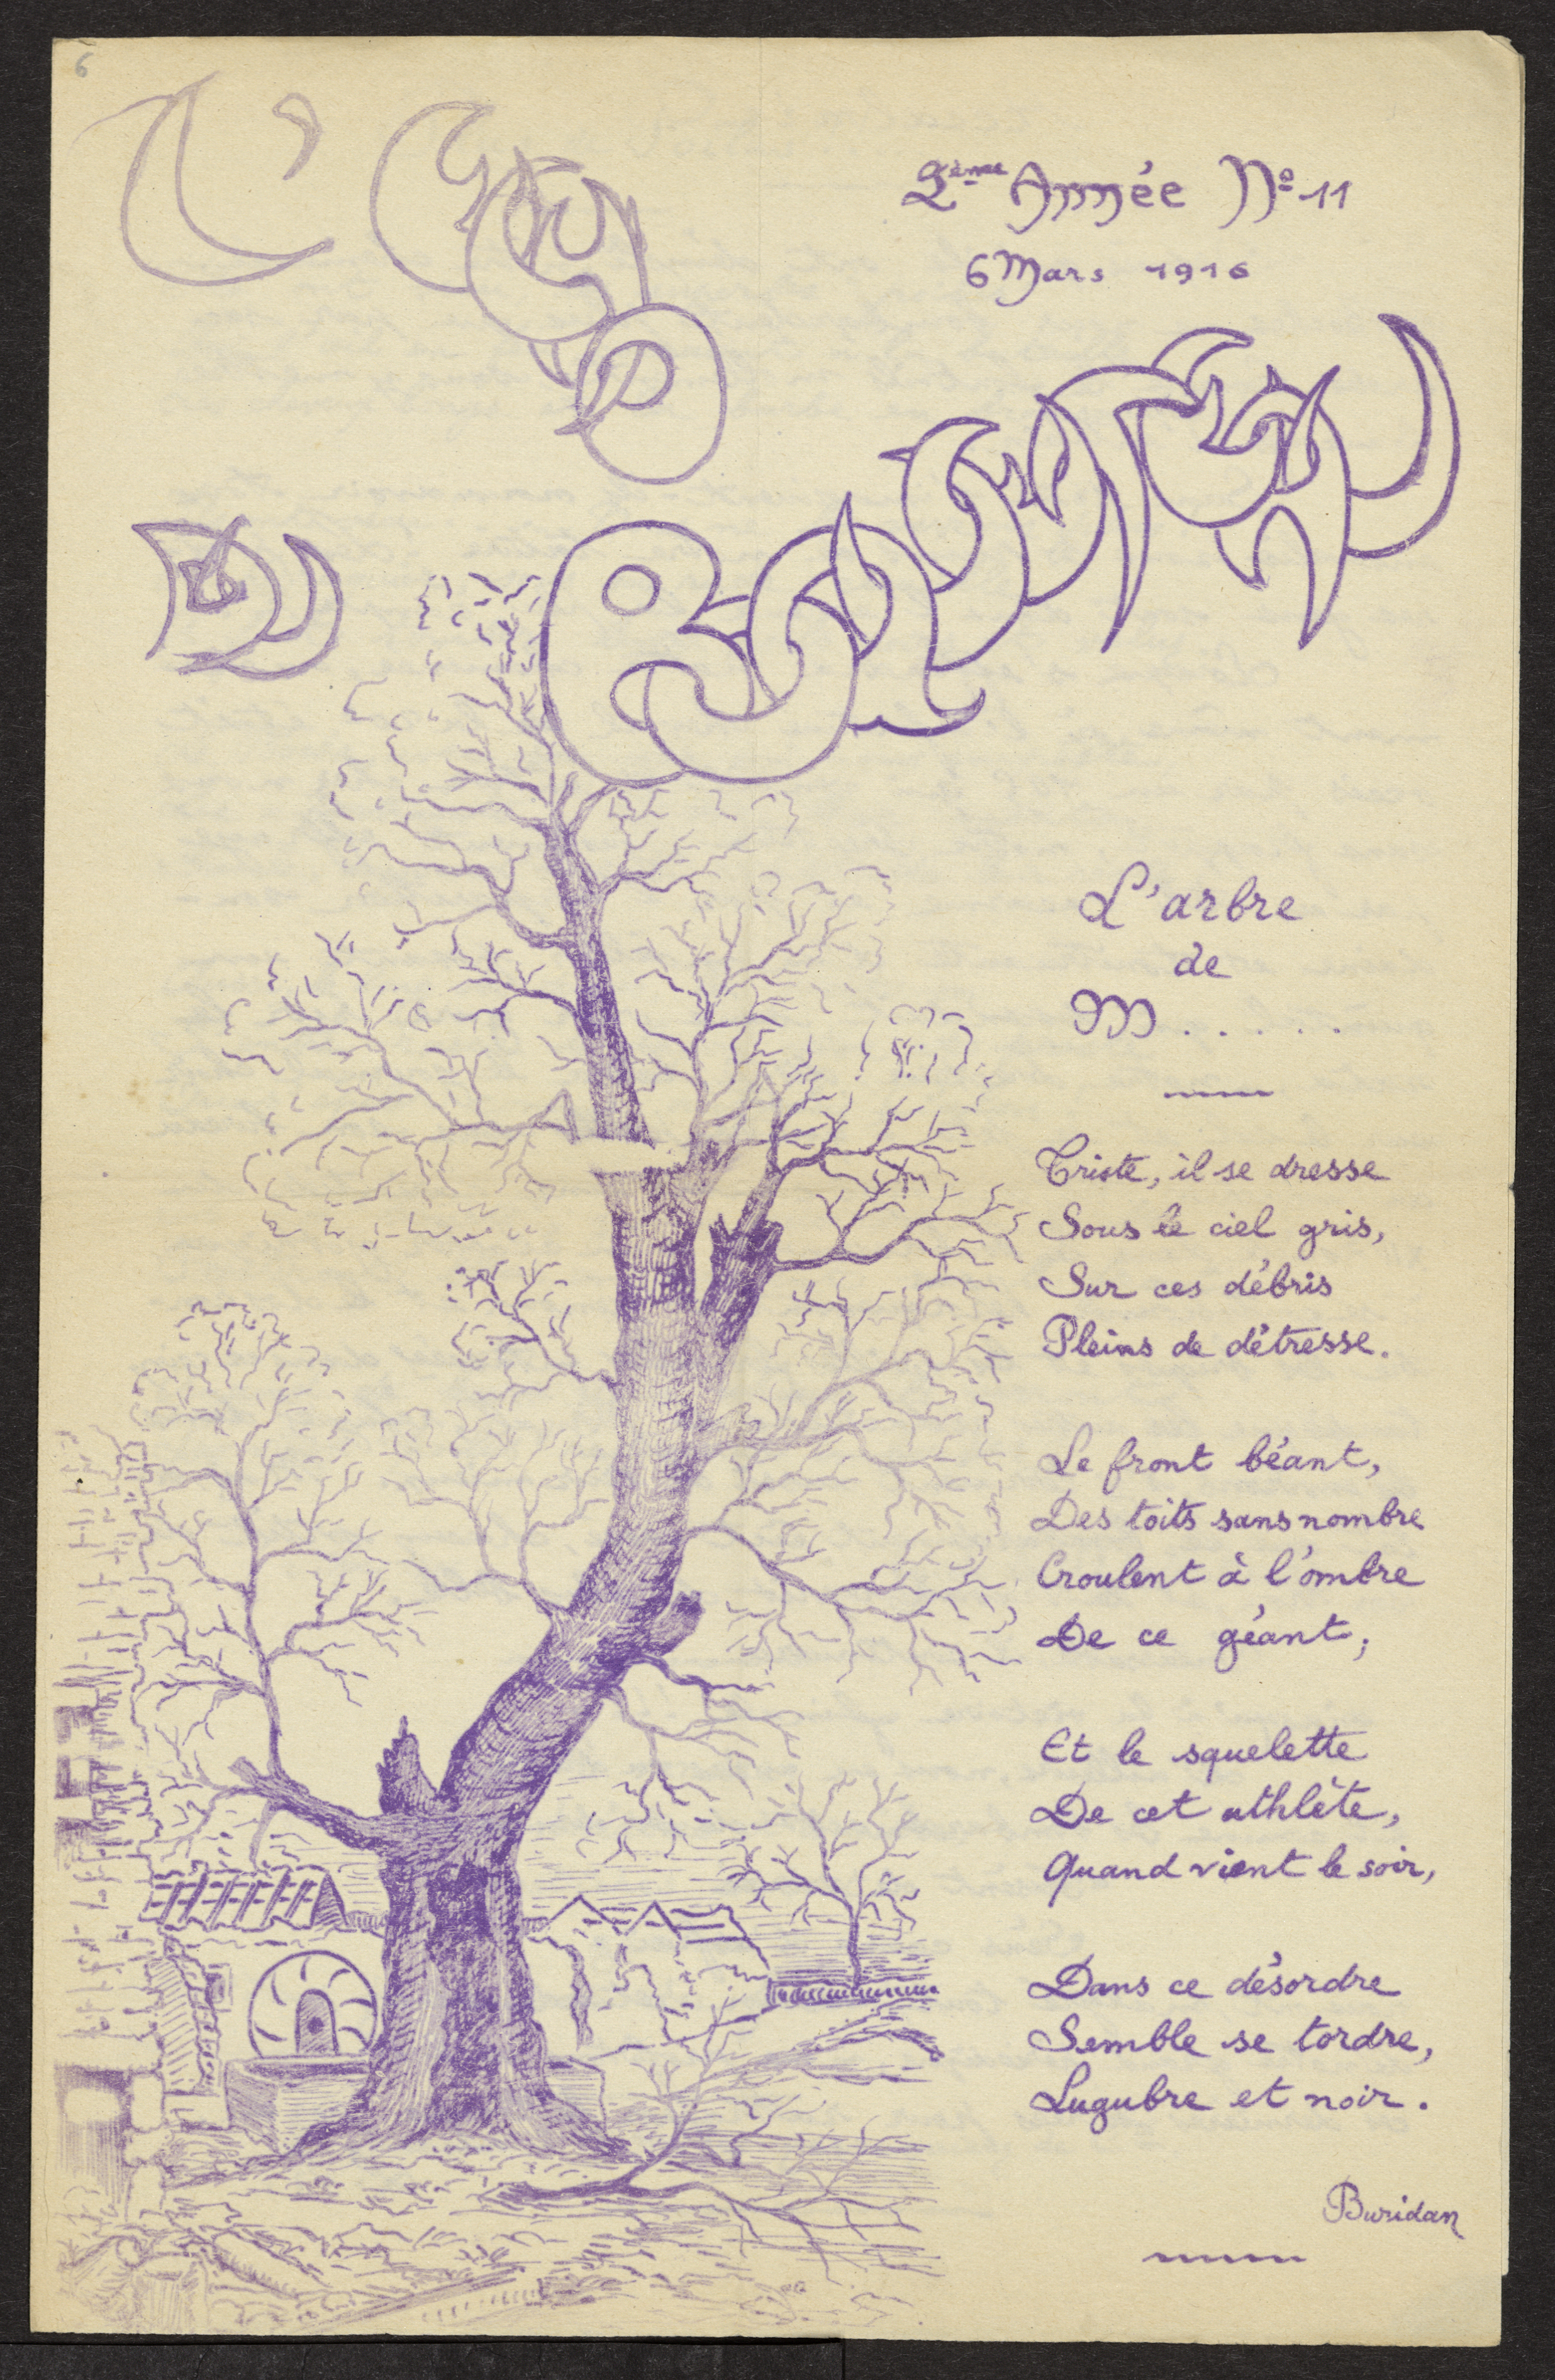 6
L'ECHO
DU
BOQUETEAU
2ème Année Nº 11
6 Mars 1916
L'arbre
de
M.....
Triste, il se dresse
Sous le ciel gris,
Sur ces débris
Pleins de détresse.
Le front béant,
Des toits sans nombre
Croulent à l'ombre
De ce géant,
Et le squelette
De cet athlète,
Quand vient le soir,
Dans ce désordre
Semble se tordre,
Lugubre et noir.
Buridan